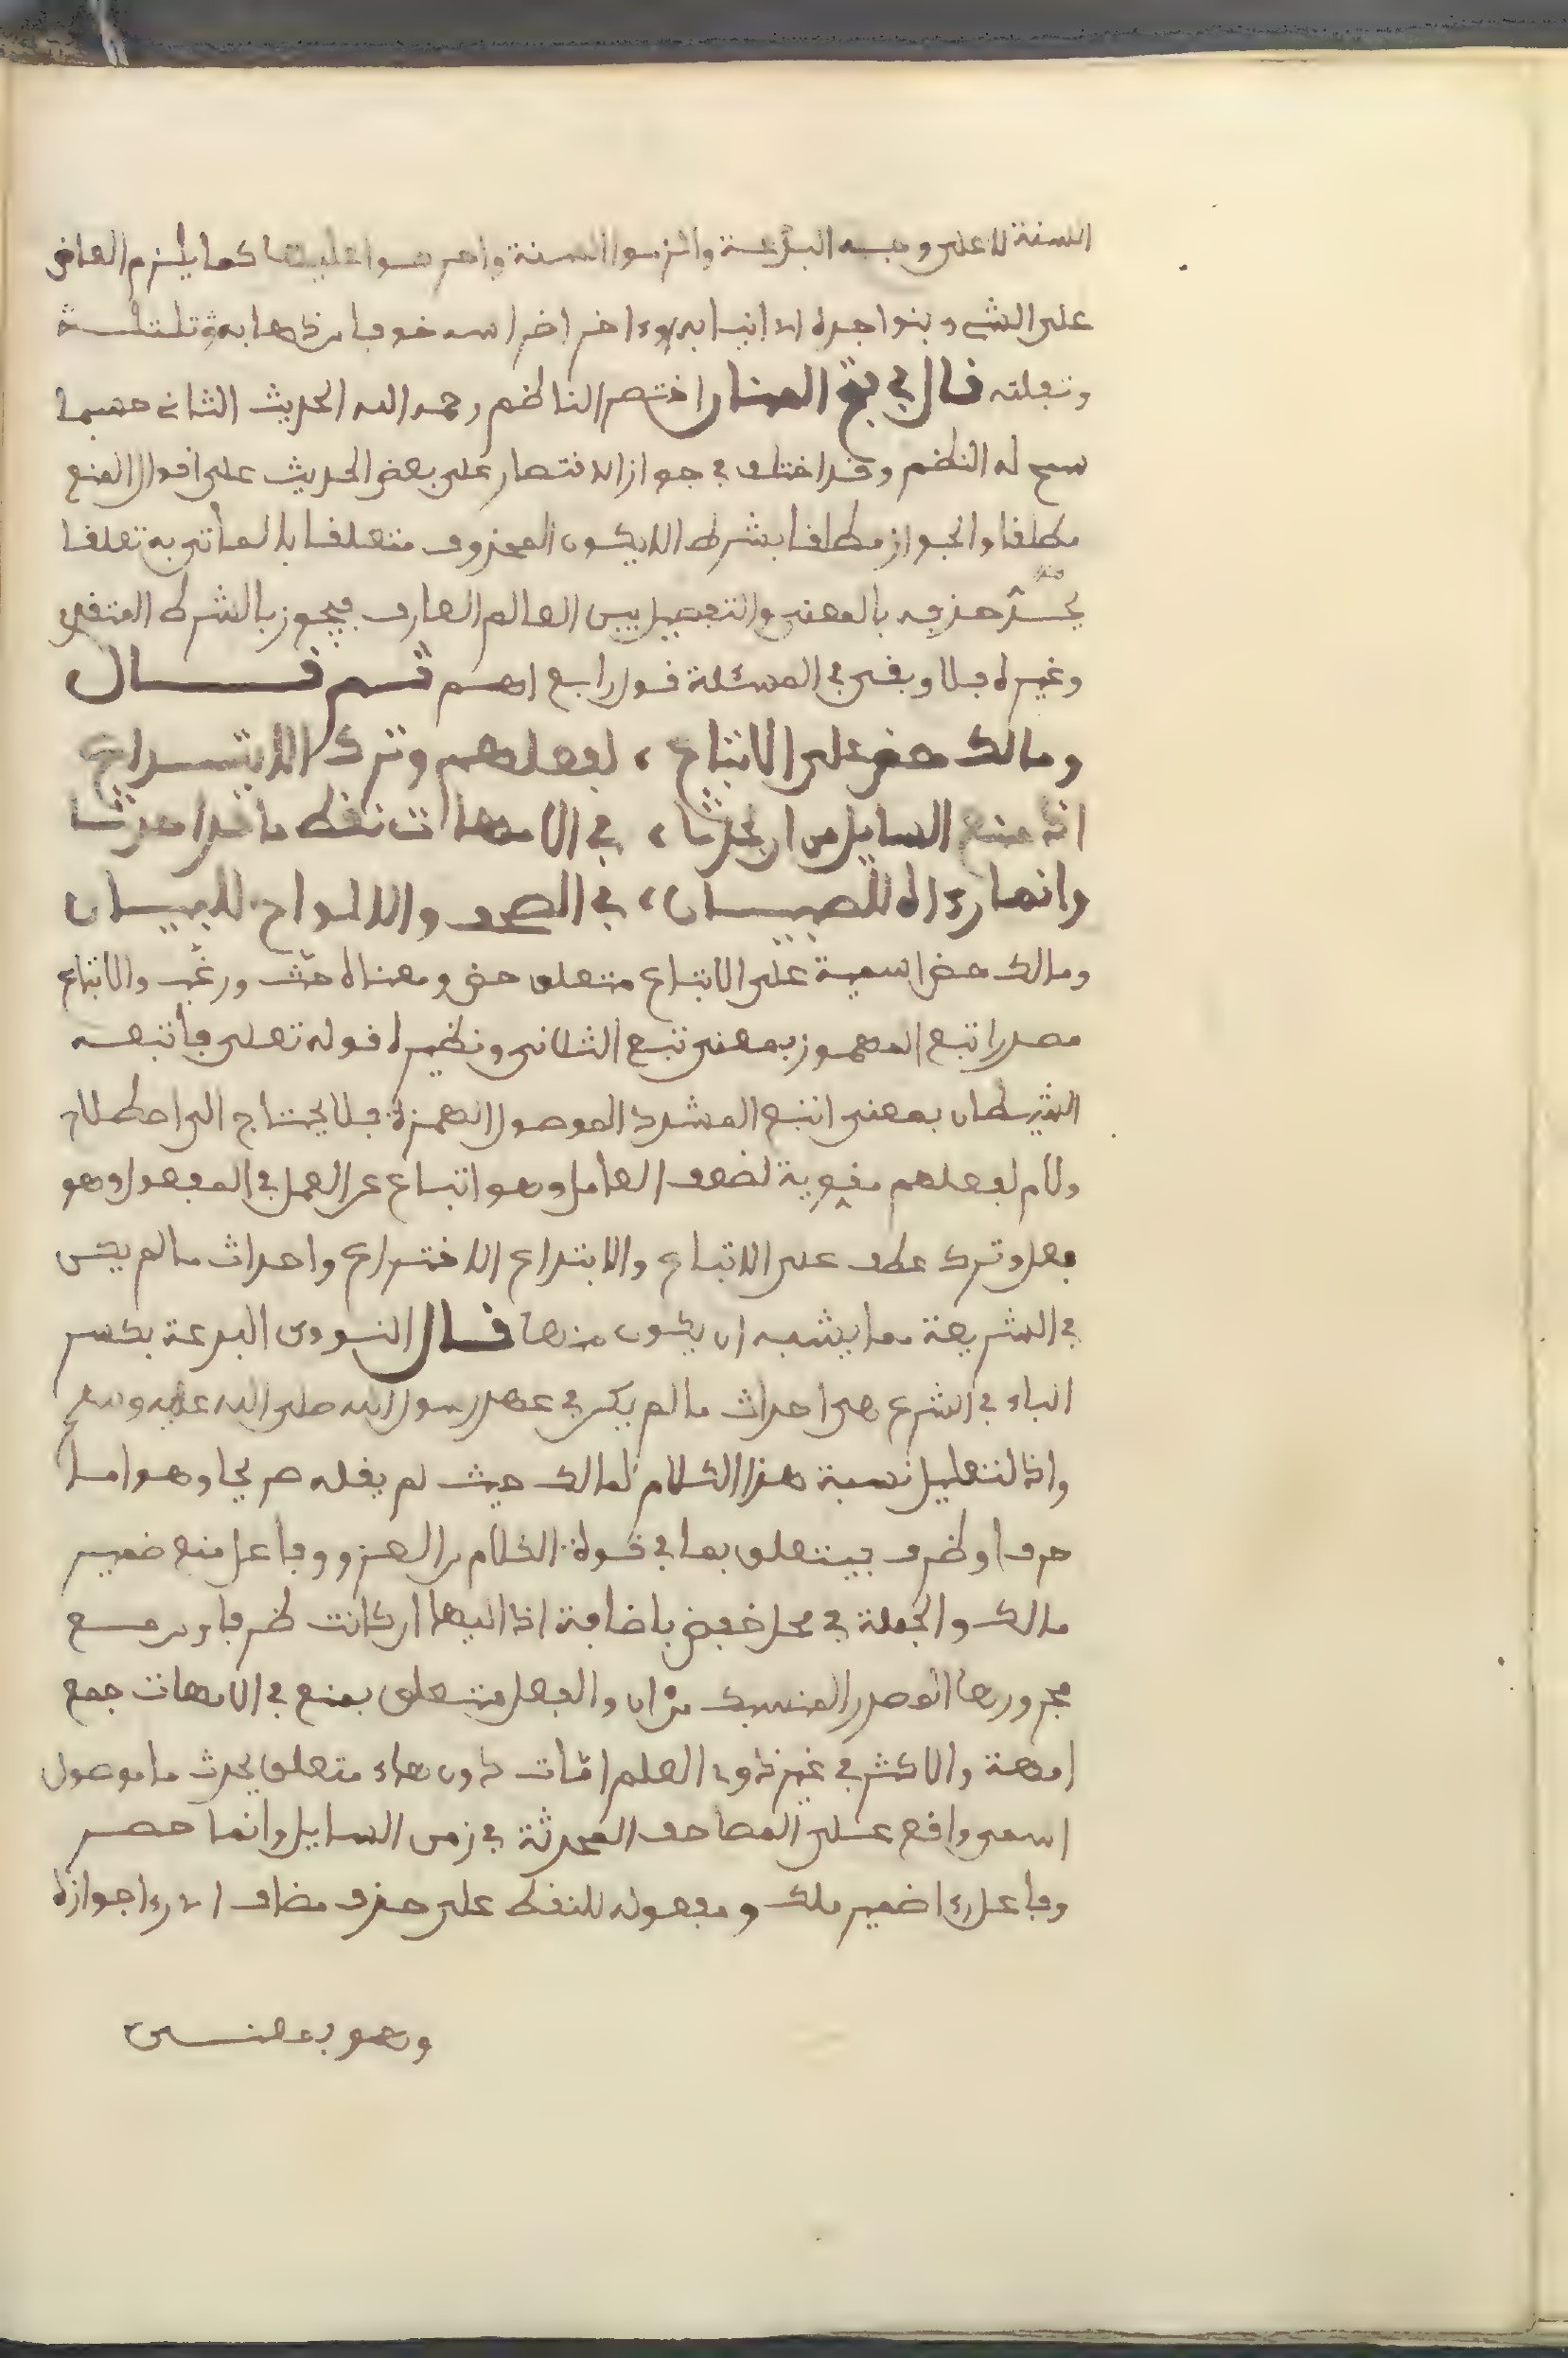 السنة لا على وجه البدعة والزموا السنة واحرصوا عليها كما يلزم العاض
على الشيء بنواجذه اي انيابه او اواخر اضراسه خوفا من ذهابه وتفلته
وتفلته قال في فتح المنان اختصر الناظم رحمه الله الحديث الثاني حسبما
سمح له النظم وقد اختلف في جواز الاقتصار على بعض الحديث على اقوال المنع
مطلقا والجواز مطلقا بشرط الا يكون المحذوف متعلقا بالمأتي به تعلقا
يخل حذفه بالمعنى والتفصيل بين العالم العارف فيجوز بالشرط المتقدم
وغيره فلا وبقي في المسئلة قول رابع اهـ ثم قال
ومالك حض على الاتباع ، لفعلهم وترك الابتداع
اذ منع السايل من ان يحدثا ، في الامهات نقط ما قد احدثا
وانما رءاه للصبيان ، في الصحف والالواح للبيان
ومالك حض اسمية على الاتباع متعلق حض ومعناه حث ورغب والاتباع
مصدر اتبع المهموز بمعنى تبع الثلاثي ونظيره قوله تعلى فأتبعه
الشيطان بمعنى اتبع المشدد الموصول الهمزة فلا يحتاج الى اصطلاح
ولام لفعلهم مقوية لضعف العامل وهو اتباع عن العمل في المفعول وهو
فعل وترك عطف على الاتباع والابتداع الاختراع واحداث ما لم يكن
في الشريعة مما يشبه ان يكون منها قال النووي البدعة بكسر
الباء في الشرع هي احداث ما لم يكن في عهد رسول الله صلى الله عليه وسلم
واذ لتعليل نسبة هذا الكلام لمالك حيث لم يقله صريحا وهو اما
حرف او ظرف فيتعلق بما في قوة الكلام من العزو وفاعل منع ضمير
مالك والجملة في محل خفض باضافة اذ اليها ان كانت ظرفا ومن مع
مجرورها المصدر المنسبك من ان والفعل متعلق بمنع في الامهات جمع
امهة والاكثر في غير ذوي العلم امّات دون هاء متعلق يحدث ما موصول
اسمي واقع على المصاحف المحدثة في زمن السايل وانما حصر
وفاعل رءا ضمير ملك ومفعوله للنقط على حذف مضاف اي رءا جوازه
وهو بمعنى